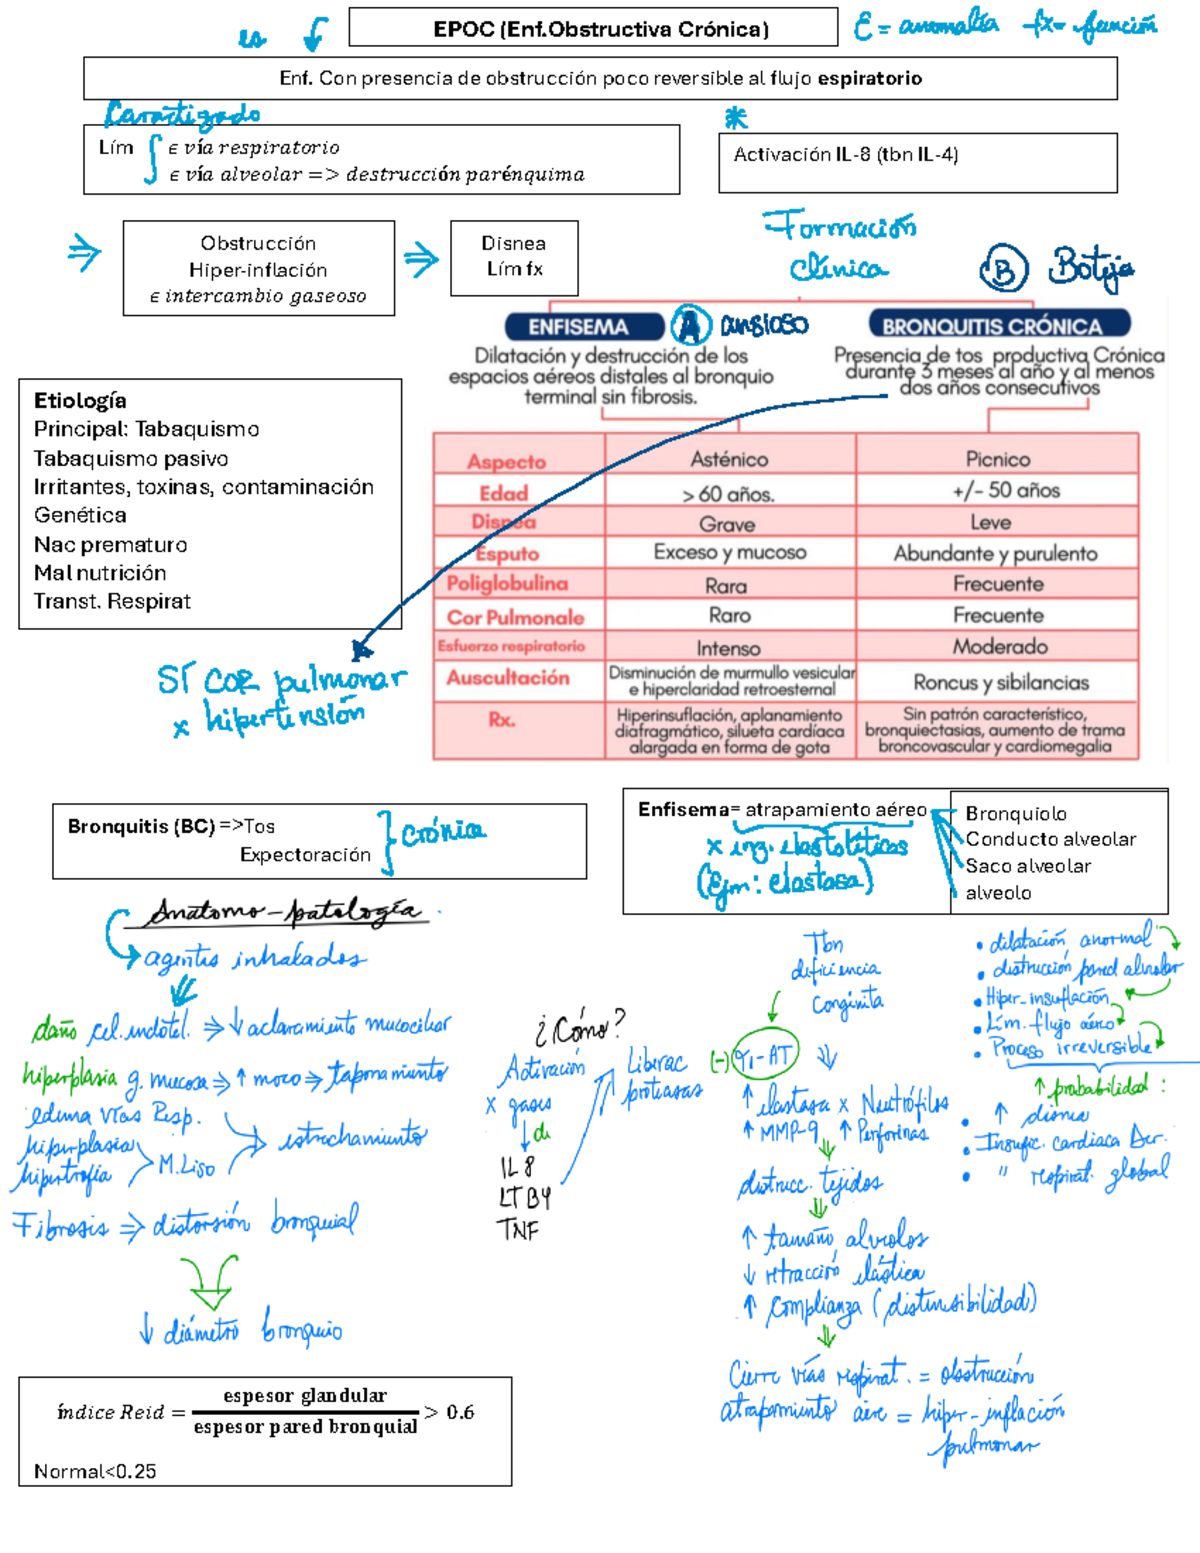 EPOC (Enf.Obstructiva Crónica)
Ɛ = anomalía fx = función
es
Enf. Con presencia de obstrucción poco reversible al flujo espiratorio
Caractizado
*
Lím ∫ ϵ vía respiratorio
ϵ vía alveolar => destrucción parénquima
Activación IL-8 (tbn IL-4)
⇒ Obstrucción
Hiper-inflación
ϵ intercambio gaseoso
⇒ Disnea
Lím fx
Formación
clínica
B Botija
ENFISEMA A ansioso
BRONQUITIS CRÓNICA
Dilatación y destrucción de los
espacios aéreos distales al bronquio
terminal sin fibrosis.
Presencia de tos productiva Crónica
durante 3 meses al año y al menos
dos años consecutivos
Etiología
Principal: Tabaquismo
Tabaquismo pasivo
Irritantes, toxinas, contaminación
Genética
Nac prematuro
Mal nutrición
Transt. Respirat
Aspecto Asténico Picnico
Edad > 60 años. +/- 50 años
Disnea Grave Leve
Esputo Exceso y mucoso Abundante y purulento
Poliglobulina Rara Frecuente
Cor Pulmonale Raro Frecuente
Esfuerzo respiratorio Intenso Moderado
Auscultación Disminución de murmullo vesicular
e hiperclaridad retroesternal
Roncus y sibilancias
Rx. Hiperinsuflación, aplanamiento
diafragmático, silueta cardíaca
alargada en forma de gota
Sin patrón característico,
bronquiectasias, aumento de trama
broncovascular y cardiomegalia
SÍ COR pulmonar
x hipertensión
Bronquitis (BC) =>Tos
Expectoración
} crónica
Enfisema= atrapamiento aéreo
x inz. elastolíticas
(Ejm: elastasa)
Bronquiolo
Conducto alveolar
Saco alveolar
alveolo
Anatomo-patología
agentes inhalados
daño cel. endotel. ⇒ ↓ aclaramiento mucociliar
hiperplasia g. mucosa ⇒ ↑ moco ⇒ taponamiento
edema vías Resp.
hiperplasia
hipertrofía > M. Liso
⇒ estrechamiento
Fibrosis ⇒ distorsión bronquial
↓ diámetro bronquio
¿Cómo?
Activación
x gases
↓ de
IL 8
LTB4
TNF
Liberac
proteasas
Tbn
deficiencia
congénita
(-) α1-AT ⇓
↑ elastasa x Neutrófilos
↑ MMP-9 ↑ Perforinas
destrucc. tejidos
↑ tamaño alveolos
↓ retracción elástica
↑ complianza (distensibilidad)
Cierre vías respirat. = obstrucción
atrapamiento aére = hiper-inflación
pulmonar
• dilatación anormal
• destrucción pared alveolar
• Hiper-insuflación
• Lím. flujo aéreo
• Proceso irreversible
↑ probabilidad :
• ↑ disnea
• Insufic. cardiaca Der.
• " respirat. global
índice Reid = espesor glandular / espesor pared bronquial > 0.6
Normal<0.25